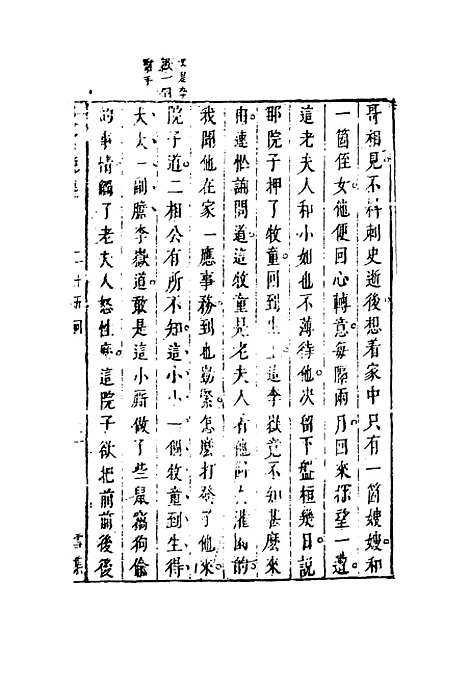 哥相見不料刺史逝後想着家中只有一箇嫂嫂和
一箇侄女他便回心轉意每隔兩月回來探望一遭
這老夫人和小姐也不薄待他次留下盤桓幾日說
那院子押了牧童回到這李嶽竟不知甚麽來
由連忙詢問道這牧童是老夫人着他灌園的
我聞他在家一應事務到也勤緊怎麽打發了他來
院子道二相公有所不知這小小一個牧童到生得
大大一副膽李嶽道敢是這小廝做了些鼠竊狗偷
的事情觸了老夫人怒性麽這院子欲把前前後後
雪集